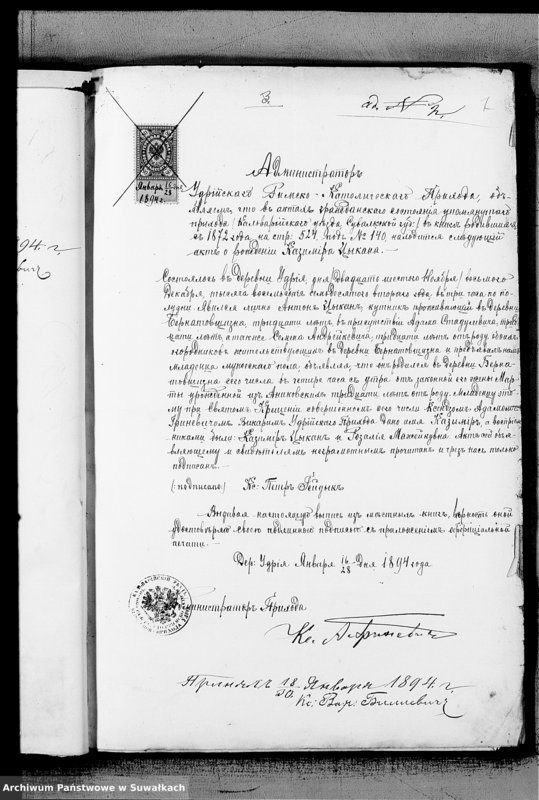 3.
ad. № 2.
94 г.
Января 16/28 дня
1894 г.
Администраторъ
Удрійскаго Римско-Католическаго Прихода, объ-
являетъ, что въ актахъ гражданскаго состоянія упомянутаго
прихода (Кальварійскаго уѣзда Сувалкской губ:) въ книгѣ родившихся,
съ 1872 года, на стр. 524, подъ № 140, находится слѣдующій
актъ о рожденіи Казиміра Цыкана. —
Состоялось въ деревнѣ Удріи, дня (двадцать шестого Ноября) восьмого
Декабря, тысяча восемьсотъ семьдесятъ второго года, въ три часа по по-
лудни. Явился лично Антонъ Цыканъ, проживающій въ деревни
Бернатовщизна, тридцати лѣтъ, въ присутствіи Адама Стадулевича, трид-
цати лѣтъ, а также Семка Андрейкевича, тридцати лѣтъ отъ роду, обоихъ
огородниковъ жительствующихъ въ деревни Бернатовщизна и предъявилъ намъ
младенца мужескаго пола, объявляя, что онъ родился въ деревни Берна-
товщизна сего числа въ четыре часа съ утра отъ законной его жены Мар-
ты урожденной изъ тридцати лѣтъ отъ роду. Младенцу это-
му при Святомъ Крещеніи совершенномъ сего числа Ксендзомъ Адамомъ
Гриневичемъ Викаримъ Удрійскаго Прихода дано имя Казиміръ, а воспріем-
никами были: Казиміръ Цыканъ и Розалія Актъ сей объ-
являющему и свидѣтелямъ неграмотнымъ прочитанъ и чрезъ насъ только
подписанъ. —
(подписано) Кс: Петръ Гейдыкъ
Выдавая настоящую выпись изъ мѣстныхъ книгъ, вѣрность оной
удостовѣряю своею подлинною подписью съ приложеніемъ оффиціальной
печати. —
Дер: Удрія Января 16/28 Дня 1894 года
Администраторъ Прихода
Кс. А. Гриневичъ
Принялъ 18/30 Января 1894 г.
Кс:
Archiwum Państwowe w Suwałkach